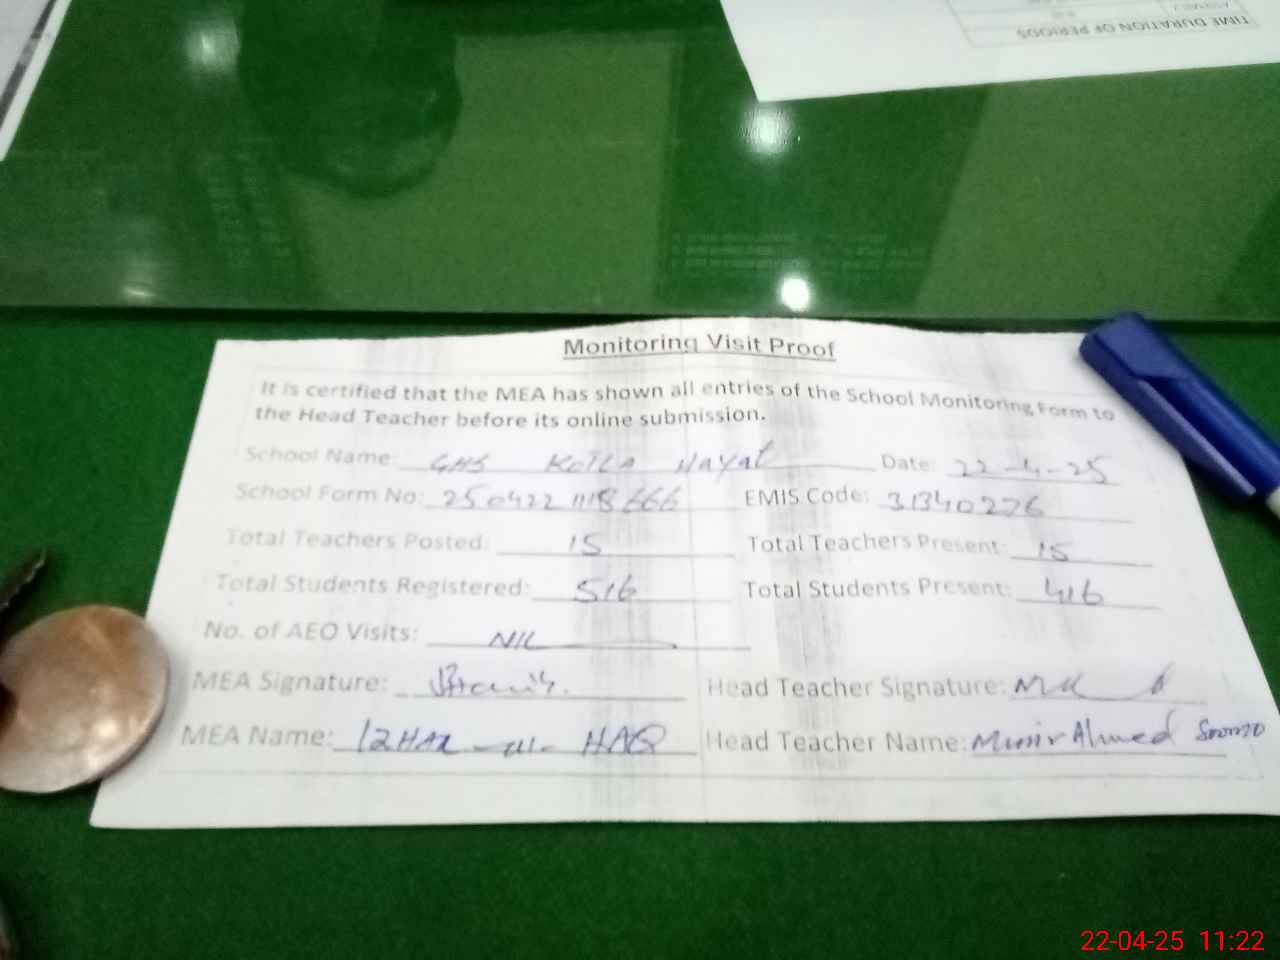 TIME DURATION OF PERIODS
Monitoring Visit Proof
It is certified that the MEA has shown all entries of the School Monitoring Form to
the Head Teacher before its online submission.
School Name: GHS Kotla Hayat Date: 22-4-25
School Form No: 250422 1118666 EMIS Code: 31340276
Total Teachers Posted: 15 Total Teachers Present: 15
Total Students Registered: 516 Total Students Present: 416
No. of AEO Visits: NIL
MEA Signature: Head Teacher Signature:
MEA Name: IZHAR-ul-HAQ Head Teacher Name: Munir Ahmed
22-04-25 11:22